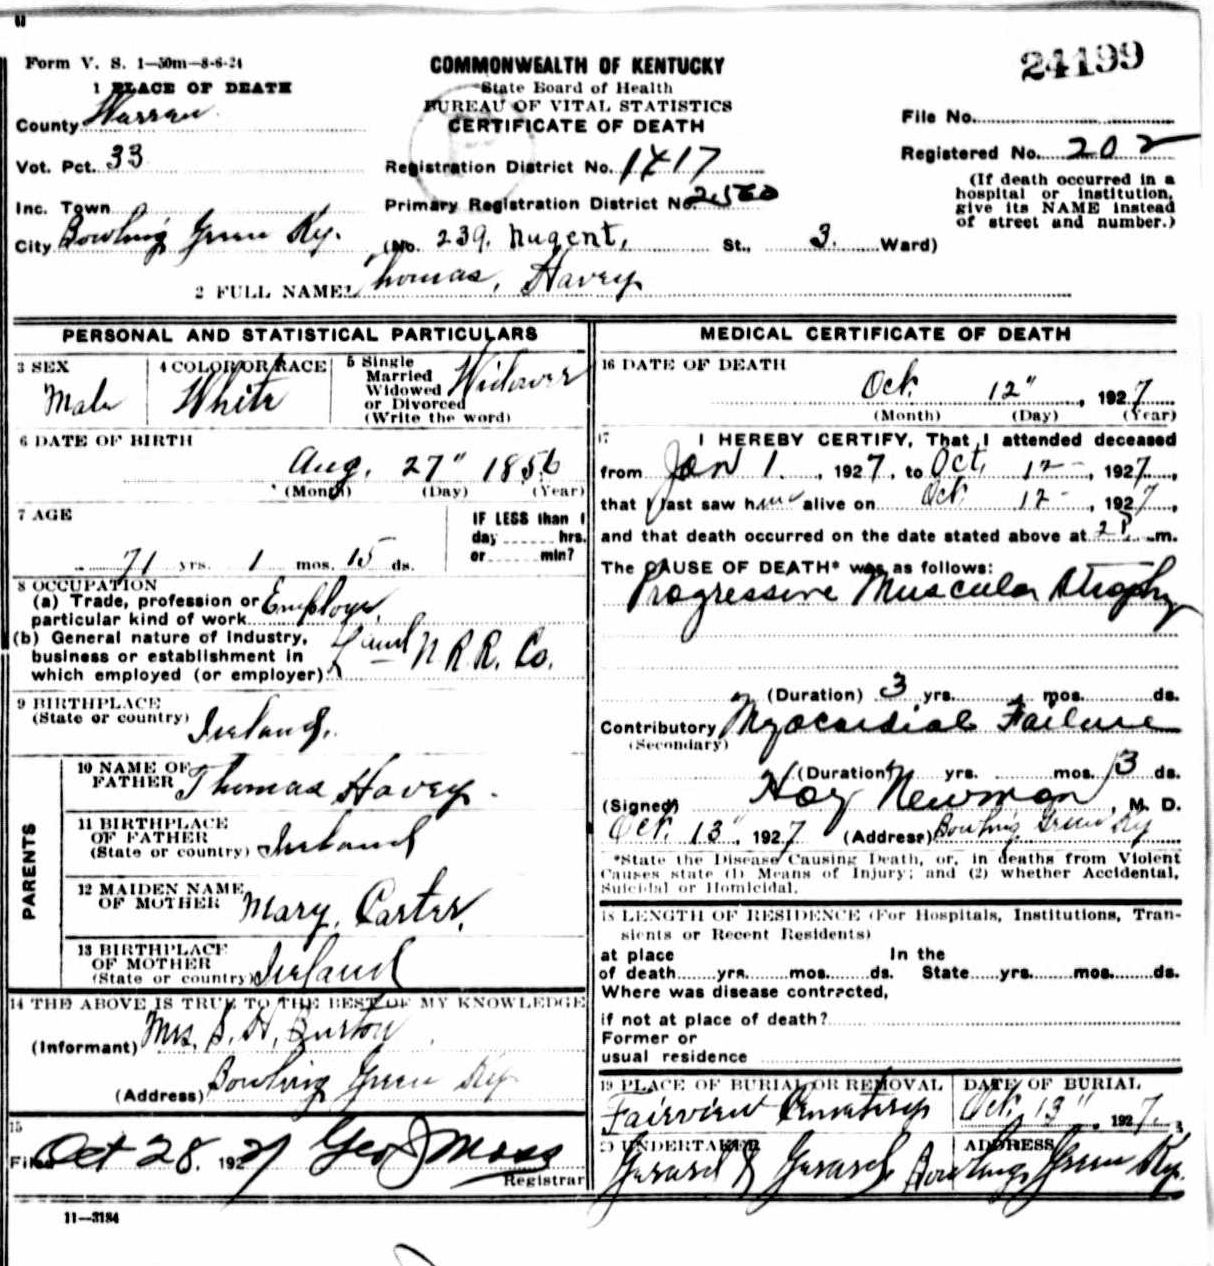 Form V. S. 1—50m—8-6-24
COMMONWEALTH OF KENTUCKY
24199
1 PLACE OF DEATH
State Board of Health
BUREAU OF VITAL STATISTICS
CERTIFICATE OF DEATH
County Warren
File No.
Vot. Pct. 33
Registration District No. 1417
Registered No. 202
(If death occurred in a hospital or institution, give its NAME instead of street and number.)
Inc. Town
Primary Registration District No.
City Bowling Green Ky. (No. 239. Nugent, St., 3. Ward)
2 FULL NAME Thomas, Havey
PERSONAL AND STATISTICAL PARTICULARS
3 SEX
Male
4 COLOR OR RACE
White
5 Single
Married
Widowed
or Divorced
(Write the word)
Widower
6 DATE OF BIRTH
Aug. 27" 1856
(Month) (Day) (Year)
7 AGE
71 yrs. 1 mos. 15 ds.
IF LESS than 1
day hrs.
or min?
8 OCCUPATION
(a) Trade, profession or
particular kind of work Employe
(b) General nature of Industry,
business or establishment in
which employed (or employer) L and N R. R. Co.
9 BIRTHPLACE
(State or country) Ireland.
PARENTS
10 NAME OF
FATHER Thomas Havey.
11 BIRTHPLACE
OF FATHER
(State or country) Ireland
12 MAIDEN NAME
OF MOTHER Mary, Carter.
13 BIRTHPLACE
OF MOTHER
(State or country) Ireland
14 THE ABOVE IS TRUE TO THE BEST OF MY KNOWLEDGE
(Informant) Mrs. S. H. Burton
(Address) Bowling Green Ky
15
Filed Oct 28. 1927 Geo J Moss
Registrar
11—3184
MEDICAL CERTIFICATE OF DEATH
16 DATE OF DEATH
Oct. 12" , 1927
(Month) (Day) (Year)
17 I HEREBY CERTIFY, That I attended deceased
from Jan 1 , 1927, to Oct. 12 , 1927,
that I last saw him alive on Oct. 12 , 1927,
and that death occurred on the date stated above at m.
The CAUSE OF DEATH* was as follows:
Progressive Muscular Atrophy
(Duration) 3 yrs. mos. ds.
Contributory Myocardial Failure
(Secondary)
(Duration) yrs. mos. 3 ds.
(Signed) Hoy Newman , M. D.
Oct. 13", 1927 (Address) Bowling Green Ky
*State the Disease Causing Death, or, in deaths from Violent
Causes state (1) Means of Injury; and (2) whether Accidental,
Suicidal or Homicidal.
18 LENGTH OF RESIDENCE (For Hospitals, Institutions, Tran-
sients or Recent Residents)
at place In the
of death yrs. mos. ds. State yrs. mos. ds.
Where was disease contracted,
if not at place of death?
Former or
usual residence
19 PLACE OF BURIAL OR REMOVAL
Fairview Cemetery
DATE OF BURIAL
Oct. 13", 1927.
20 UNDERTAKER
Gerard & Gerard
ADDRESS
Bowling Green Ky.